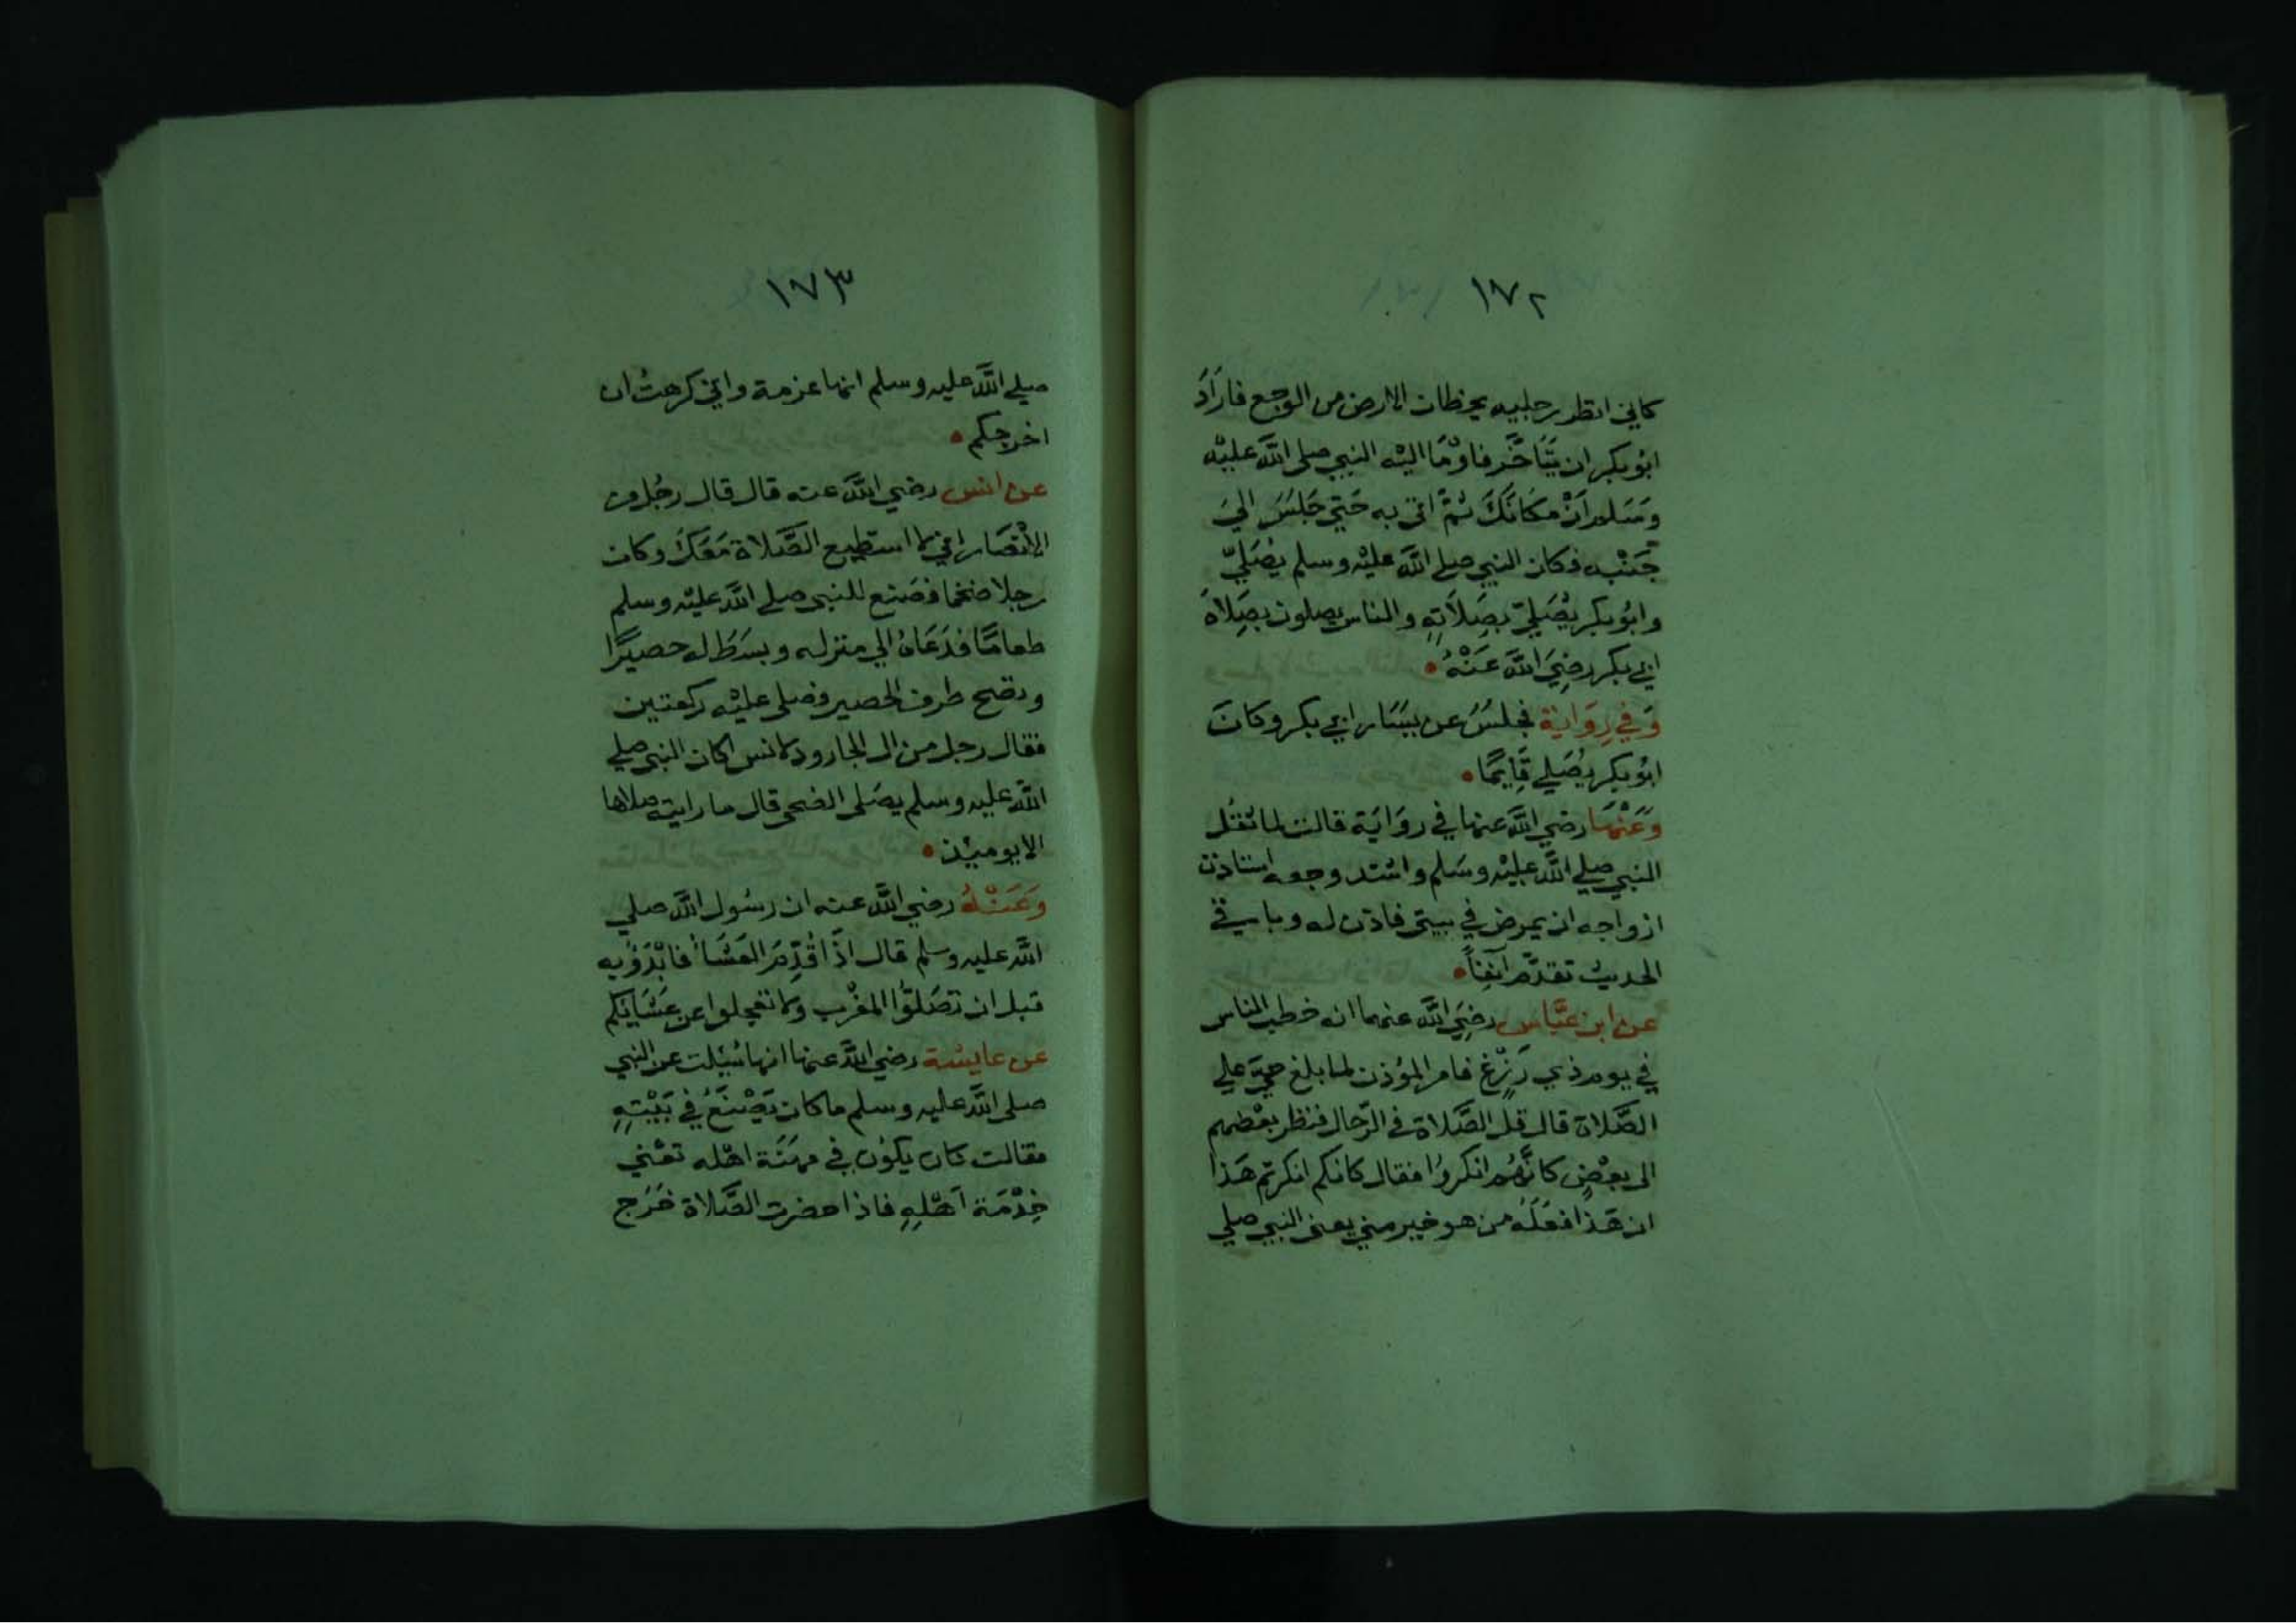 ١٧٢
كاني انظر رجليه يخطان الارض من الوجع فارَادَ
ابُو بكر ان يَتَاخَّر فاوْمَا اليْه النبي صلى اللَّه عليْه
وسَلم انْ مكَانَكَ ثمَّ اتى به حَتي جَلسَ اليَ
جَنْبه فكان النبي صلي اللَّه عليْه وسلم يُصَليّ
وابُو بكر يُصَليّ بصَلاَتِه والناس يصلون بصَلاة
ابي بكر رضِيَ اللَّه عَنْهُ
وَفي رِوَاية فجلسَ عن يسَار ابي بكر وكانَ
ابُو بكر يُصَلي قَايمًا
وَعَنْهَا رضي اللَّه عنها في روَايَة قالت لما ثقُل
النبي صلي اللَّه عليْه وسَلم واشتد وجعه استاذن
ازواجه ان يمرض في بيتي فاذن له وباقي
الحديث تقدَّم آنفاً
عن ابن عبَّاس رضِيَ اللَّه عنهما انه خطب الناس
في يوم ذي رَزْغ فامر المؤذن لما بلغ حيَّ علي
الصَّلاة قال قل الصَّلاة في الرّحال فنظر بعْضهم
الى بعْضٍ كانَّهُم انكروُا فقال كانكم انكرتم هَذا
ان هَذا فعَلَه من هو خير مني يعني النبي صلي
١٧٣
صلي اللَّه عليه وسلم انها عزمة واني كرهتُ ان
اخرجكم
عن انس رضي اللَّه عنه قال قال رجُل من
الانْصَار اني لا استطيع الصَّلاة مَعَكَ وكان
رجلا ضخما فصَنع للنبي صلي اللَّه عليْه وسلم
طعامًا فدَعَاهُ الي منزله وبسَطَ له حصيرًا
ونضح طرف الحصير فصلى عليْه ركعتين
فقال رجل من ال الجارود لانس اكان النبي صلي
اللَّه عليه وسلم يصَلى الضحى قال ما رايته صلاها
الا يوميْذ
وَعَنْهُ رضي اللَّه عنه ان رسُول اللَّه صلي
اللَّه عليه وسلم قال اذَا قُدِّمَ العَشَاُ فابْدَؤُبه
قبل ان تصَلوُّا المغْرب ولا تعجلوا عن عَشَايكم
عن عايشة رضي اللَّه عنها انها سُيلت عن النبي
صلى اللَّه عليه وسلم ما كان يَصْنَعُ في بَيْتِهِ
فقالت كان يكوُن في مهنَة اهْله تعْني
خِدْمَة اهْلِهِ فاذا حضرت الصَّلاة خَرَج